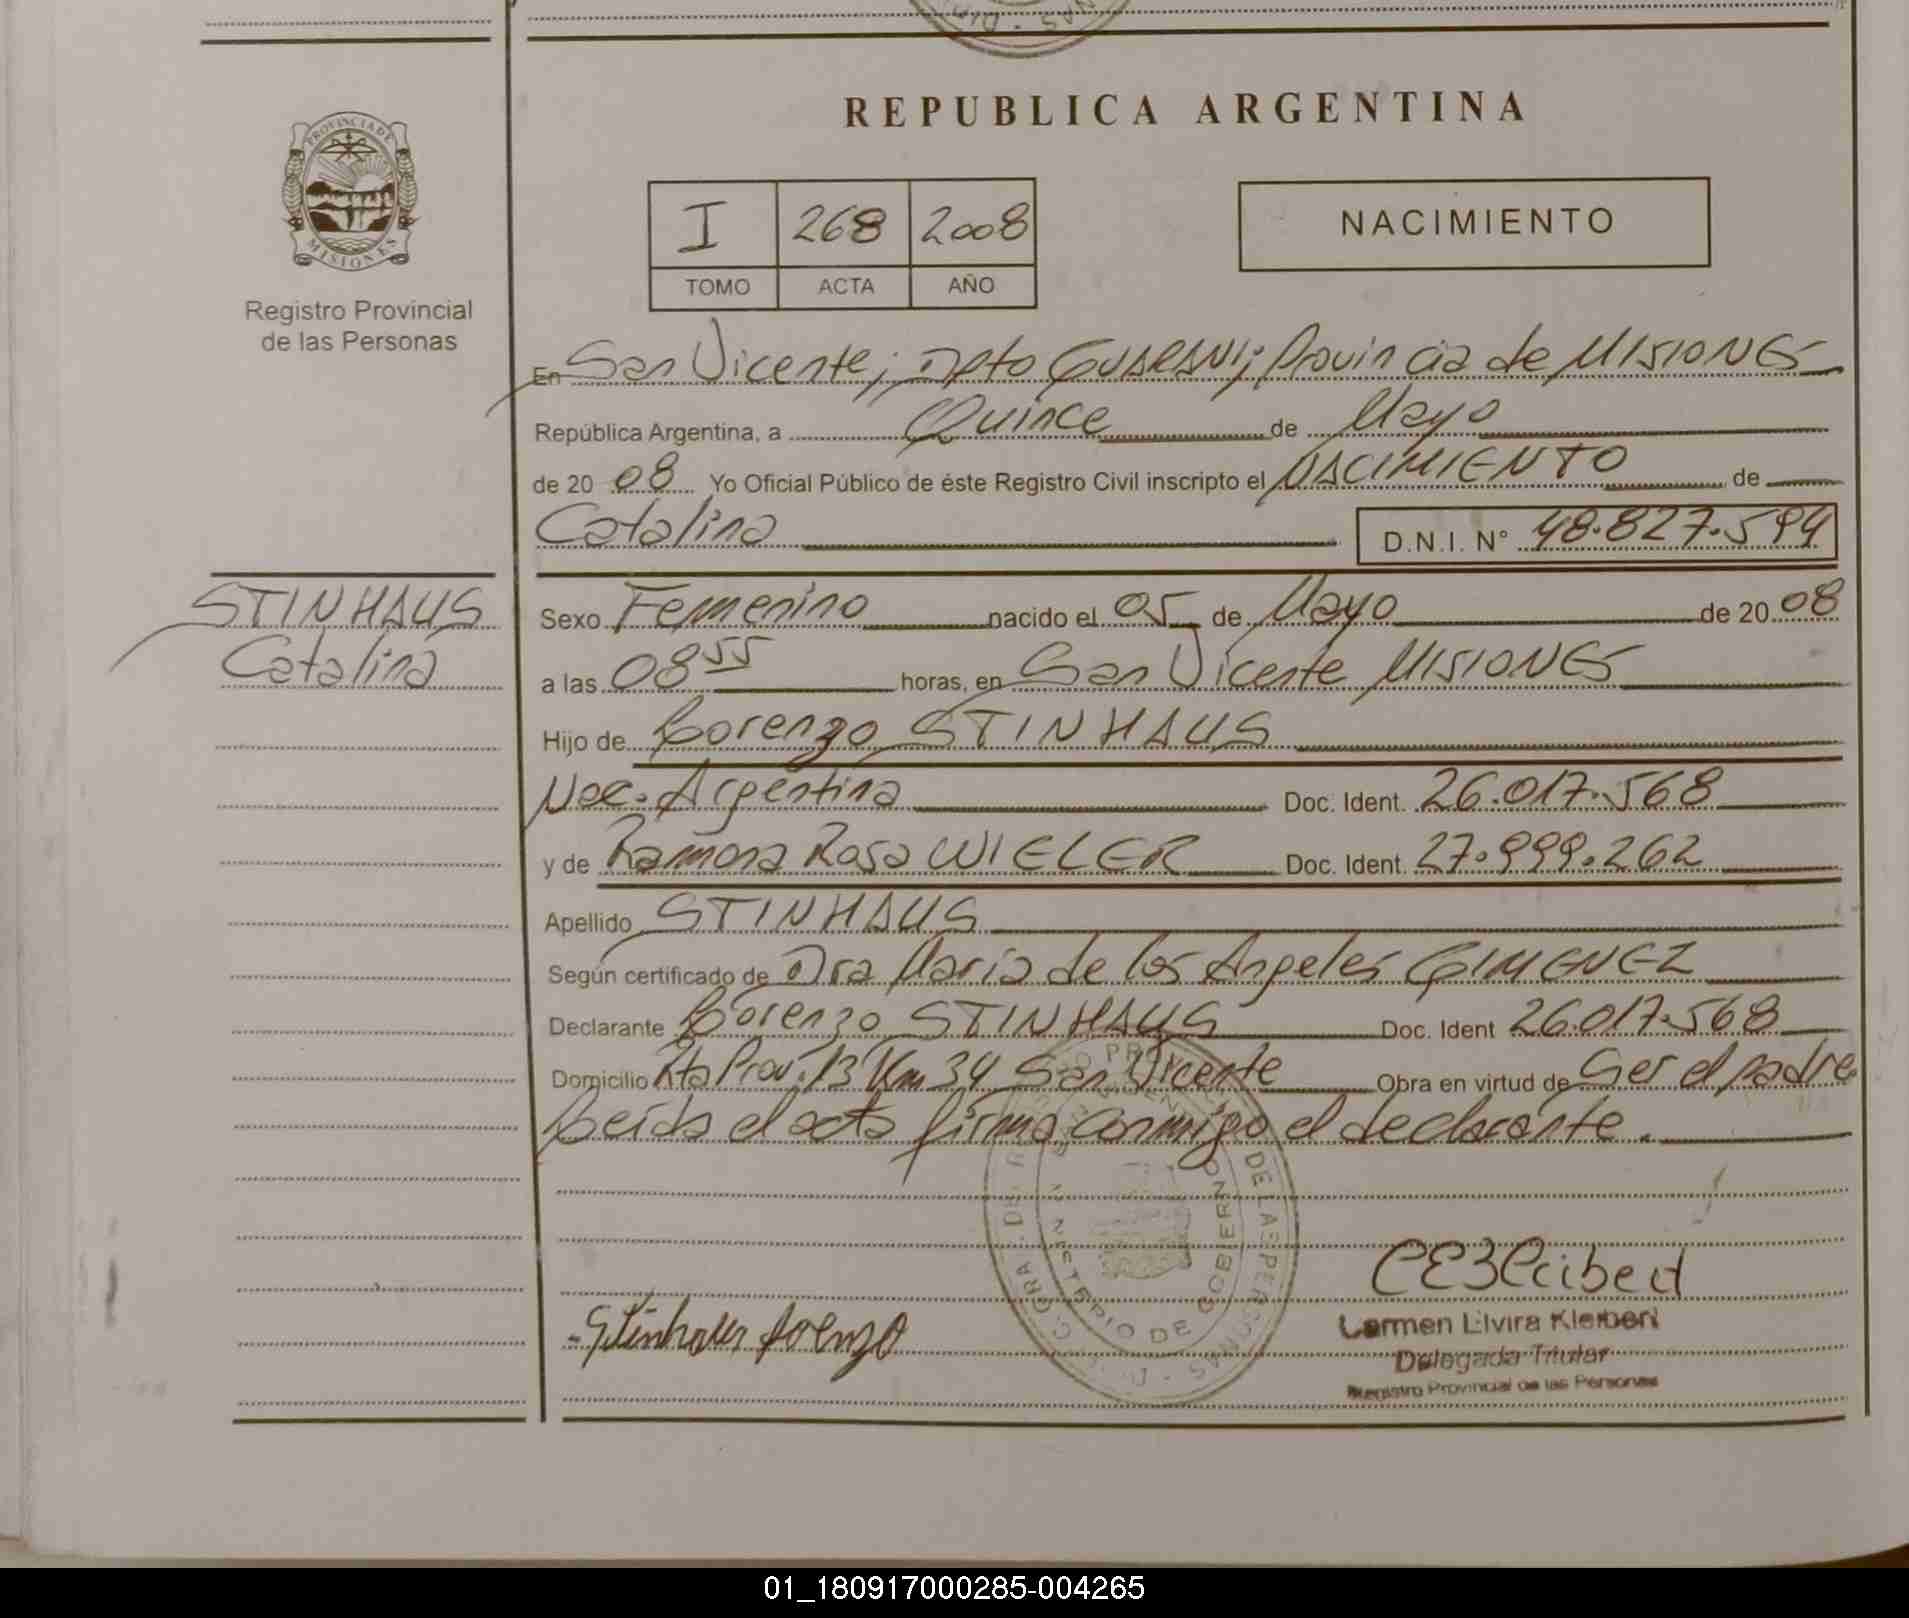 REPUBLICA ARGENTINA
PROVINCIA DE
MISIONES
Registro Provincial
de las Personas
I 268 2008
TOMO ACTA AÑO
NACIMIENTO
En San Vicente; Dpto GUARANI; Provincia de MISIONES
República Argentina, a Quince de Mayo
de 20 08 Yo Oficial Público de éste Registro Civil inscripto el NACIMIENTO de
Catalina D.N.I. N° 48.827.594
STINHAUS
Catalina
Sexo Femenino nacido el 05 de Mayo de 20 08
a las 08 55 horas, en San Vicente MISIONES
Hijo de Lorenzo STINHAUS
Nac. Argentina Doc. Ident. 26.017.568
y de Ramona Rosa WIELER Doc. Ident. 27.999.262
Apellido STINHAUS
Según certificado de Dra Maria de los Angeles GIMENEZ
Declarante Lorenzo STINHAUS Doc. Ident 26.017.568
Domicilio Rta Prov. 13 Km 34 San Vicente Obra en virtud de Ser el padre
Leída el acta firma conmigo el declarante.
MINISTERIO DE GOBIERNO
DE LAS PERSONAS
Stinhaus Lorenzo
Carmen Elvira Kleibert
Delegada Titular
Registro Provincial de las Personas
01_180917000285-004265